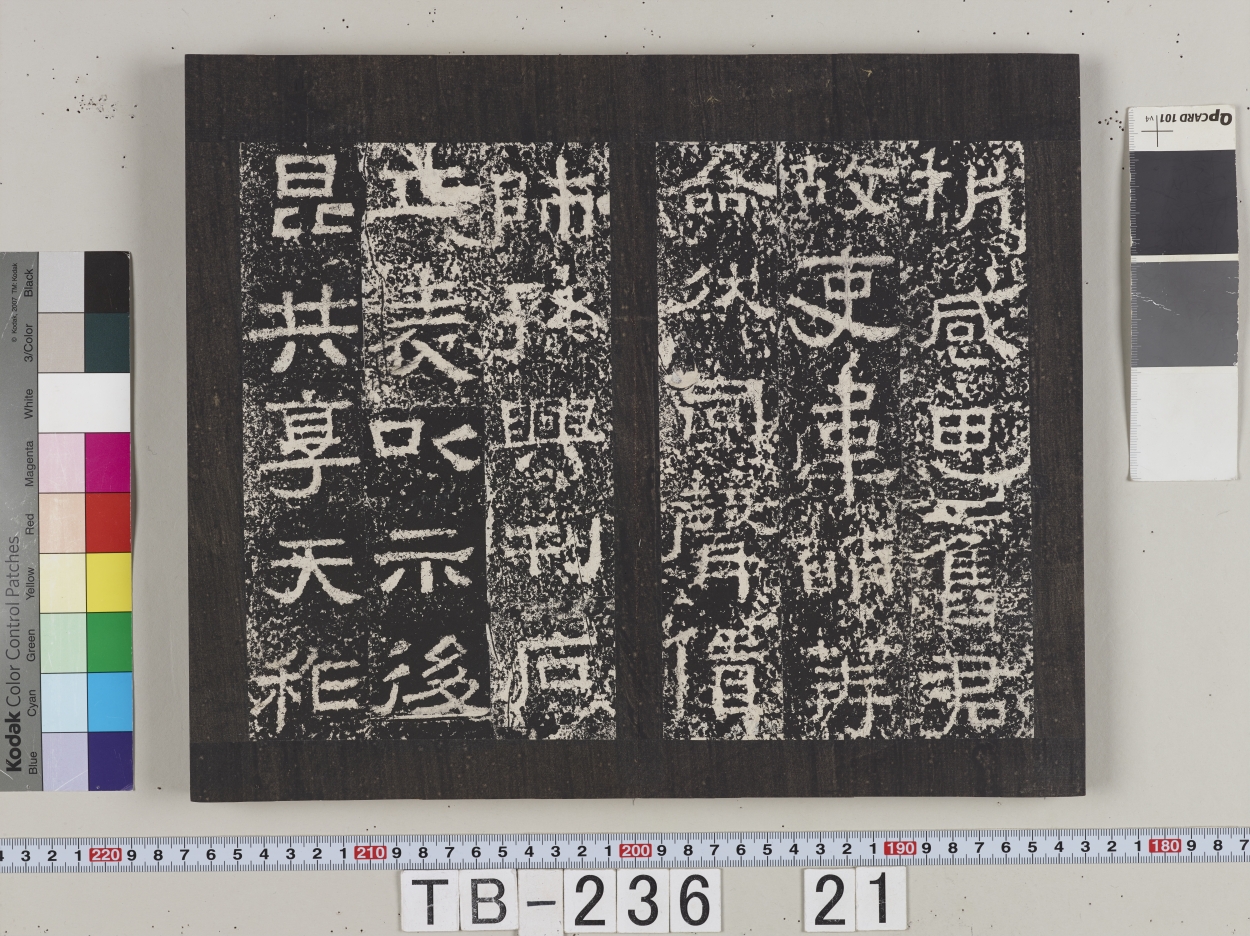 析感思舊君
故吏韋萌等
僉然同聲賃
師孫興刊石
立表以示後
昆共享天祚
QPCARD 101 v4
Kodak Color Control Patches
© Kodak, 2007 TM: Kodak
Blue Cyan Green Yellow Red Magenta White 3/Color Black
4 3 2 1 220 9 8 7 6 5 4 3 2 1 210 9 8 7 6 5 4 3 2 1 200 9 8 7 6 5 4 3 2 1 190 9 8 7 6 5 4 3 2 1 180 9 8 7
TB-236 21